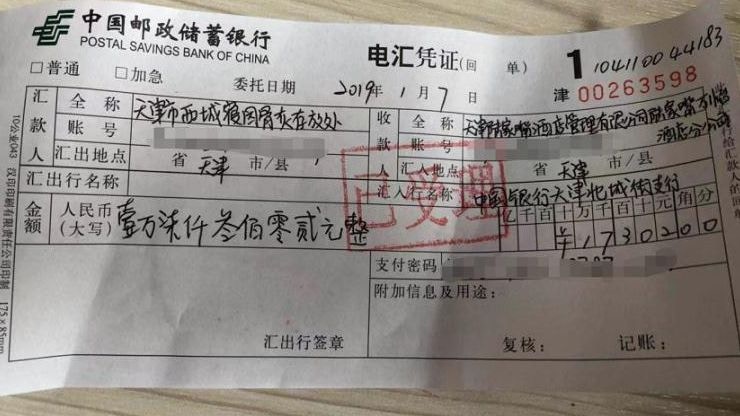 中国邮政储蓄银行
POSTAL SAVINGS BANK OF CHINA
电汇凭证(回 单) 1 1041100 44183
□普通 □加急 委托日期 2019年 1月 7日 津 00263598
汇款人 全称 天津市西城寝园骨灰存放处 收款人 全称 天津陆家嘴酒店管理有限公司陆家嘴万怡
酒店分公司
账号 账号
汇出地点 省 天津 市/县 汇入地点 省 天津 市/县
汇出行名称 汇入行名称 中国银行天津 城街支行
已受理
金额 人民币(大写) 壹万柒仟叁佰零贰元整 亿千百十万千百十元角分
¥1730200
支付密码
附加信息及用途:
汇出行签章 复核: 记账:
10公业043 汉印印刷有限责任公司印制 175×85mm
行给汇款人的回单